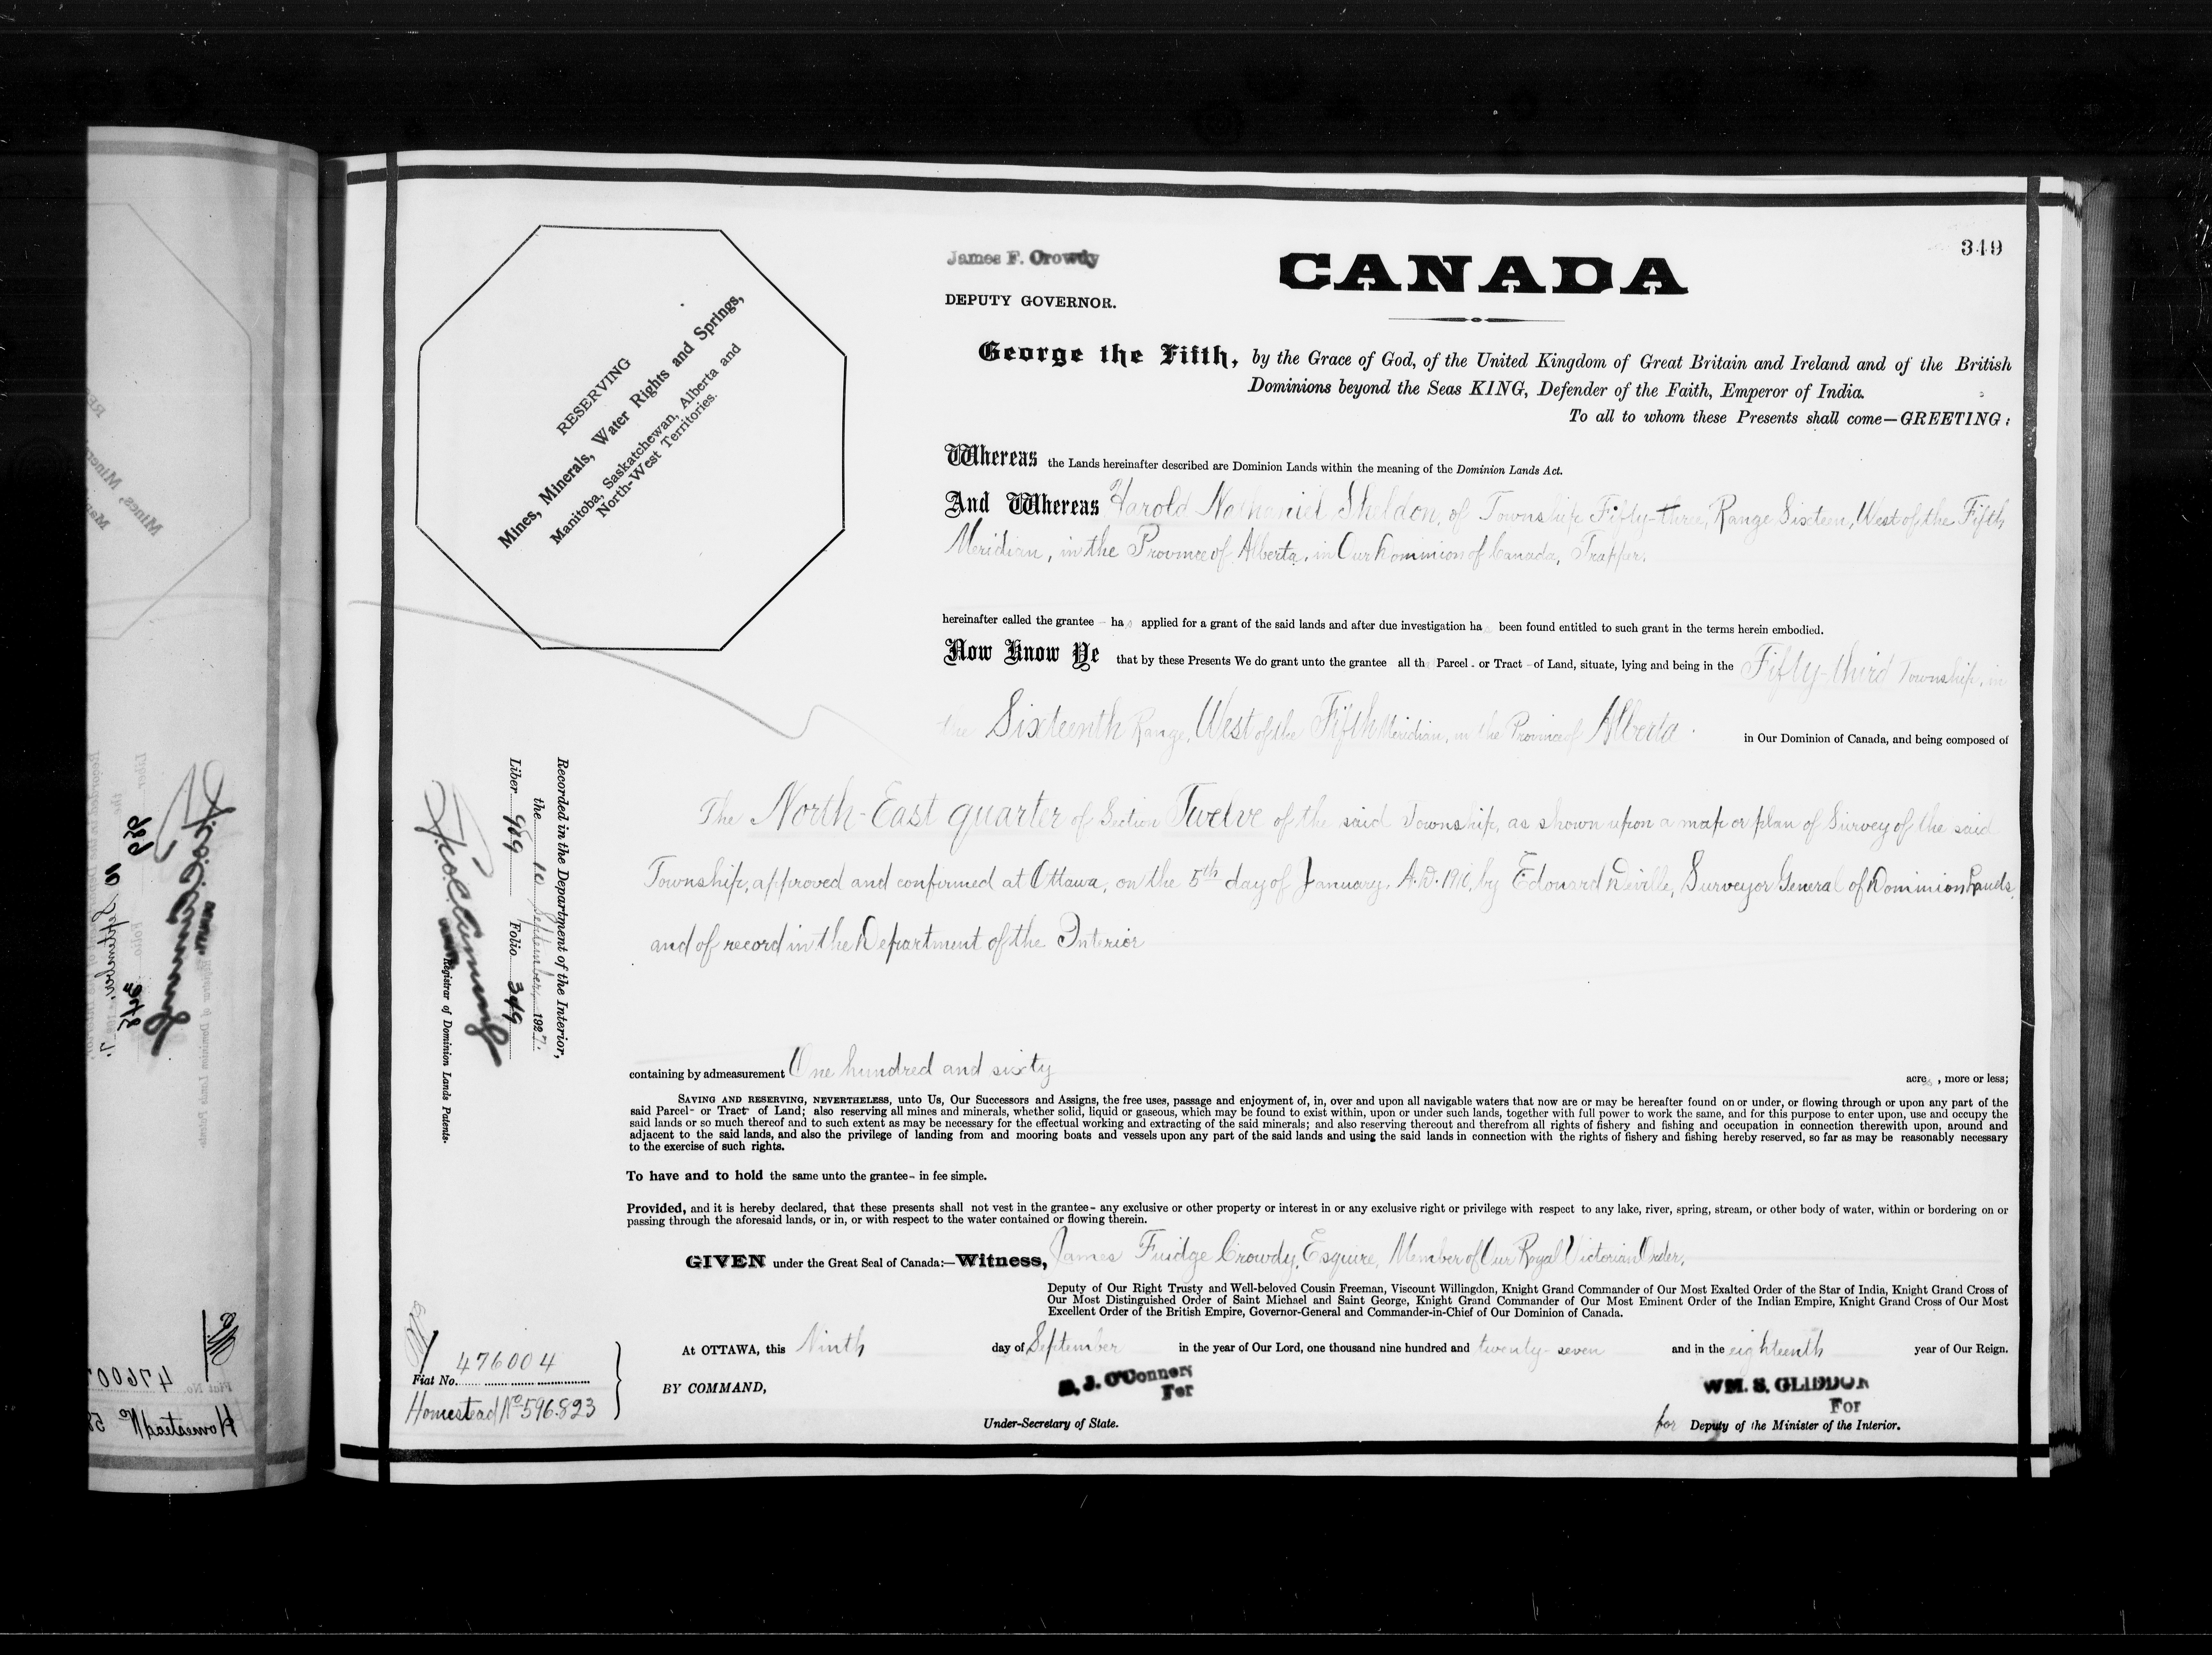 349
James F. Crowdy
DEPUTY GOVERNOR.
CANADA
RESERVING
Mines, Minerals, Water Rights and Springs,
Manitoba, Saskatchewan, Alberta and
North-West Territories.
George the Fifth, by the Grace of God, of the United Kingdom of Great Britain and Ireland and of the British
Dominions beyond the Seas KING, Defender of the Faith, Emperor of India.
To all to whom these Presents shall come—GREETING:
Whereas the Lands hereinafter described are Dominion Lands within the meaning of the Dominion Lands Act.
And Whereas Harold Nathaniel Sheldon, of Township Fifty-three, Range Sixteen, West of the Fifth
Meridian, in the Province of Alberta, in Our Dominion of Canada, Trapper.
hereinafter called the grantee - has applied for a grant of the said lands and after due investigation has been found entitled to such grant in the terms herein embodied.
Now Know Ye that by these Presents We do grant unto the grantee all th Parcel - or Tract - of Land, situate, lying and being in the Fifty-third Township, in
the Sixteenth Range, West of the Fifth Meridian, in the Province of Alberta in Our Dominion of Canada, and being composed of
The North-East quarter of Section Twelve of the said Township, as shown upon a map or plan of Survey of the said
Township, approved and confirmed at Ottawa, on the 5th day of January, A.D. 1910, by Edouard Deville, Surveyor General of Dominion Lands,
and of record in the Department of the Interior
Recorded in the Department of the Interior,
the 10 September, 1927.
Liber 989 Folio 349
Registrar of Dominion Lands Patents.
containing by admeasurement One hundred and sixty acres, more or less;
SAVING AND RESERVING, NEVERTHELESS, unto Us, Our Successors and Assigns, the free uses, passage and enjoyment of, in, over and upon all navigable waters that now are or may be hereafter found on or under, or flowing through or upon any part of the
said Parcel- or Tract- of Land; also reserving all mines and minerals, whether solid, liquid or gaseous, which may be found to exist within, upon or under such lands, together with full power to work the same, and for this purpose to enter upon, use and occupy the
said lands or so much thereof and to such extent as may be necessary for the effectual working and extracting of the said minerals; and also reserving thereout and therefrom all rights of fishery and fishing and occupation in connection therewith upon, around and
adjacent to the said lands, and also the privilege of landing from and mooring boats and vessels upon any part of the said lands and using the said lands in connection with the rights of fishery and fishing hereby reserved, so far as may be reasonably necessary
to the exercise of such rights.
To have and to hold the same unto the grantee- in fee simple.
Provided, and it is hereby declared, that these presents shall not vest in the grantee- any exclusive or other property or interest in or any exclusive right or privilege with respect to any lake, river, spring, stream, or other body of water, within or bordering on or
passing through the aforesaid lands, or in, or with respect to the water contained or flowing therein.
GIVEN under the Great Seal of Canada:—Witness, James Fuidge Crowdy, Esquire, Member of Our Royal Victorian Order,
Deputy of Our Right Trusty and Well-beloved Cousin Freeman, Viscount Willingdon, Knight Grand Commander of Our Most Exalted Order of the Star of India, Knight Grand Cross of
Our Most Distinguished Order of Saint Michael and Saint George, Knight Grand Commander of Our Most Eminent Order of the Indian Empire, Knight Grand Cross of Our Most
Excellent Order of the British Empire, Governor-General and Commander-in-Chief of Our Dominion of Canada.
At OTTAWA, this Ninth day of September in the year of Our Lord, one thousand nine hundred and twenty-seven and in the eighteenth year of Our Reign.
Fiat No. 476004
Homestead No 596823
BY COMMAND,
D. J. O'Connor
For
Under-Secretary of State.
WM. S. GLIDDON
For
for Deputy of the Minister of the Interior.